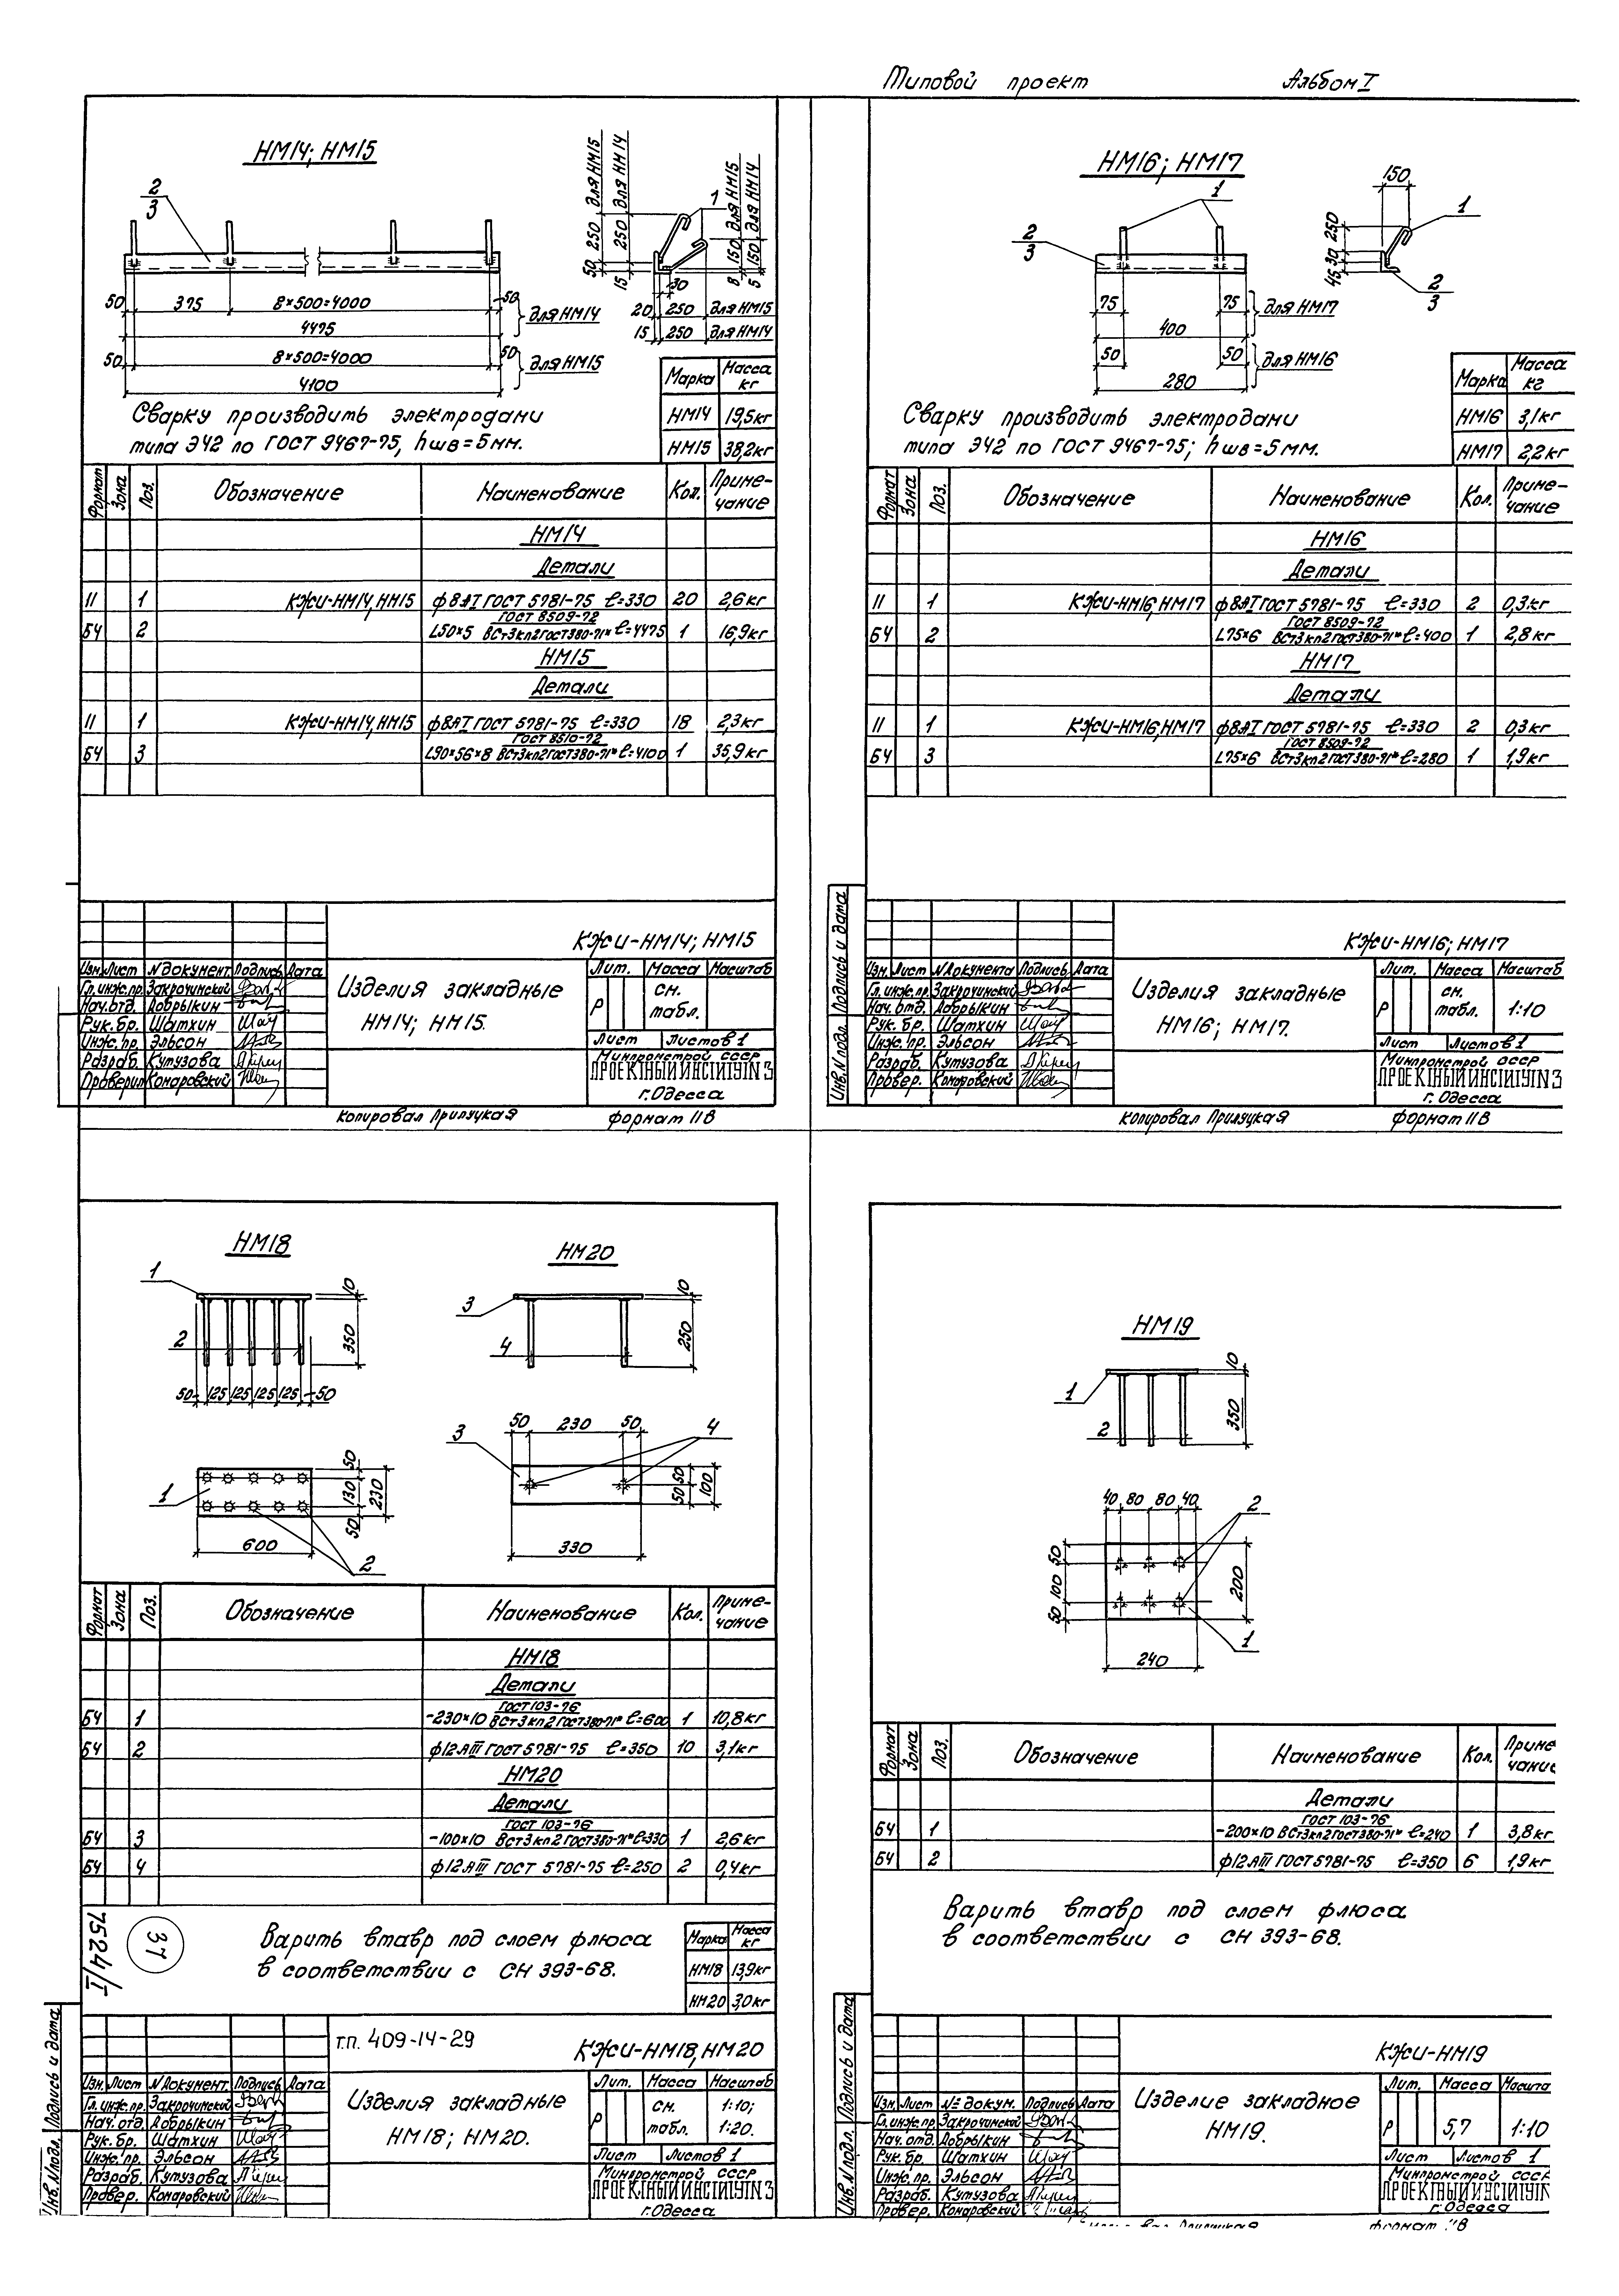 Типовой проект Альбом I
НМ14; НМ15
2
3
50 375 8×500=4000 50
4475
для НМ14
50 8×500=4000 50
4100
для НМ15
50 250 для НМ15
15 250 для НМ14
1
8 150 для НМ15
5 150 для НМ14
30
20 250 для НМ15
15 250 для НМ14
Марка Масса кг
НМ14 19,5кг
НМ15 38,2кг
Сварку производить электродами
типа Э42 по ГОСТ 9467-75, hшв=5мм.
Формат Зона Поз. Обозначение Наименование Кол. Приме-
чание
НМ14
Детали
11 1 КЖИ-НМ14,НМ15 ф8АI ГОСТ 5781-75 ℓ=330 20 2,6кг
ГОСТ 8509-72
БЧ 2 L50×5 ВСт3кп2ГОСТ380-71* ℓ=4475 1 16,9кг
НМ15
Детали
11 1 КЖИ-НМ14,НМ15 ф8АI ГОСТ 5781-75 ℓ=330 18 2,3кг
ГОСТ 8510-72
БЧ 3 L90×56×8 ВСт3кп2ГОСТ380-71* ℓ=4100 1 35,9кг
КЖИ-НМ14; НМ15
Изм. Лист N документ. Подпись Дата
Гл.инж.пр. Закрочинский
Нач.отд. Добрыкин
Рук.бр. Шатхин
Инж.пр. Эльсон
Разраб. Кутузова
Проверил Комаровский
Изделия закладные
НМ14; НМ15.
Лит. Масса Масштаб
Р см.
табл.
Лист Листов 1
Минпромстрой СССР
ПРОЕКТНЫЙ ИНСТИТУТ N3
г.Одесса
Копировал Прилуцкая формат 11В
НМ16; НМ17
1
2
3
75 75
400
для НМ17
50 50
280
для НМ16
150
1
250
30
45
2
3
Марка Масса кг
НМ16 3,1кг
НМ17 2,2кг
Сварку производить электродами
типа Э42 по ГОСТ 9467-75; hшв=5мм.
Формат Зона Поз. Обозначение Наименование Кол. Приме-
чание
НМ16
Детали
11 1 КЖИ-НМ16,НМ17 ф8АI ГОСТ 5781-75 ℓ=330 2 0,3кг
ГОСТ 8509-72
БЧ 2 L75×6 ВСт3кп2ГОСТ380-71* ℓ=400 1 2,8кг
НМ17
Детали
11 1 КЖИ-НМ16,НМ17 ф8АI ГОСТ 5781-75 ℓ=330 2 0,3кг
ГОСТ 8509-72
БЧ 3 L75×6 ВСт3кп2ГОСТ380-71* ℓ=280 1 1,9кг
Инв.N подл. Подпись и дата
КЖИ-НМ16; НМ17
Изм. Лист N Документа Подпись Дата
Гл.инж.пр. Закрочинский
Нач. отд. Добрыкин
Рук. бр. Шатхин
Инж. пр. Эльсон
Разраб. Кутузова
Провер. Комаровский
Изделия закладные
НМ16; НМ17.
Лит. Масса Масштаб
Р см.
табл. 1:10
Лист Листов 1
Минпромстрой СССР
ПРОЕКТНЫЙ ИНСТИТУТ N3
г. Одесса
Копировал Прилуцкая формат 11В
НМ18
1
2
10
350
50 125 125 125 125 50
1
50
130
50
230
600
2
НМ20
3
4
10
250
50 230 50
3
4
50
50
100
330
Формат Зона Поз. Обозначение Наименование Кол. Приме-
чание
НМ18
Детали
ГОСТ 103-76
БЧ 1 -230×10 ВСт3кп2ГОСТ380-71* ℓ=600 1 10,8кг
БЧ 2 ф12АIII ГОСТ 5781-75 ℓ=350 10 3,1кг
НМ20
Детали
ГОСТ 103-76
БЧ 3 -100×10 ВСт3кп2ГОСТ380-71* ℓ=330 1 2,6кг
БЧ 4 ф12АIII ГОСТ 5781-75 ℓ=250 2 0,4кг
7524/I
37
Варить втавр под слоем флюса
в соответствии с СН 393-68.
Марка Масса кг
НМ18 13,9кг
НМ20 3,0кг
Инв.N подл. Подпись и дата
т.п. 409-14-29
КЖИ-НМ18,НМ20
Изм. Лист N Документ. Подпись Дата
Гл.инж.пр. Закрочинский
Нач. отд. Добрыкин
Рук. бр. Шатхин
Инж. пр. Эльсон
Разраб. Кутузова
Провер. Комаровский
Изделия закладные
НМ18; НМ20.
Лит. Масса Масштаб
Р см. 1:10;
табл. 1:20.
Лист Листов 1
Минпромстрой СССР
ПРОЕКТНЫЙ ИНСТИТУТ N3
г.Одесса
НМ19
1
2
10
350
40 80 80 40
2
50
100
50
200
1
240
Формат Зона Поз. Обозначение Наименование Кол. Приме-
чание
Детали
ГОСТ 103-76
БЧ 1 -200×10 ВСт3кп2ГОСТ380-71* ℓ=240 1 3,8кг
БЧ 2 ф12АIII ГОСТ 5781-75 ℓ=350 6 1,9кг
Варить втавр под слоем флюса
в соответствии с СН 393-68.
Инв.N подл. Подпись и дата
КЖИ-НМ19
Изм. Лист № докум. Подпись Дата
Гл.инж.пр. Закрочинский
Нач. отд. Добрыкин
Рук. бр. Шатхин
Инж. пр. Эльсон
Разраб. Кутузова
Провер. Комаровский
Изделие закладное
НМ19.
Лит. Масса Масшта
Р 5,7 1:10
Лист Листов 1
Минпромстрой СССР
ПРОЕКТНЫЙ ИНСТИТУТ N
г.Одесса